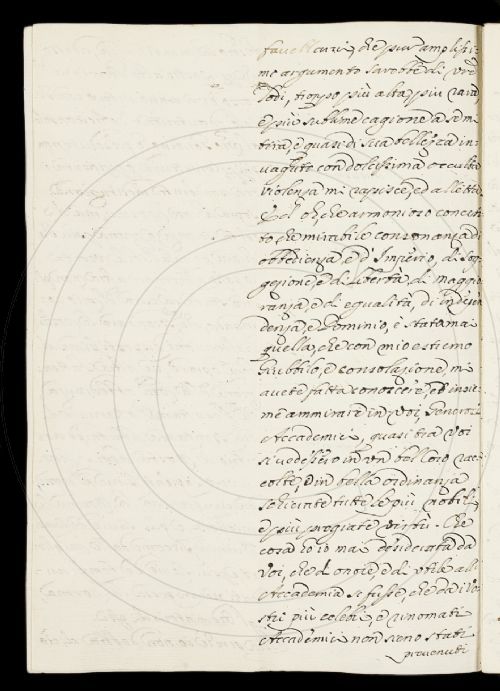 favellarvi, che per amplissi-
mo argumento sarebbe di vre
lodi, troppo più alta, più rara,
e più sublime cagione a se mi
tira, e quasi di sua bellezza in-
vaghito con dolcissima occulta
violenza mi rapisce, ed alletta.
Et oh, che armonioso concen-
to che mirabile consonanza di
obbedienza e d'Imperio, di sog-
gezione, e di libertà, di maggio-
ranza, e di egualità, di indepen
denza, e Dominio, è stata mai
quella, che con mio estremo
Giubbilo, e consolazione, mi
avete fatta conoscere, ed insie-
me ammirare in Voi, Generosi
Accademici, quasi tra Voi
si vedessero in un bel coro rac-
colte, e in bella ordinanza
schierate tutte le più nobili
e più pregiate virtù. Che
cosa ho io mai desiderata da
Voi, che d'onore, e di utile all'
Accademia si fusse, che da i vo-
stri più celebri, e rinomati
Accademici non sieno stati
provenuti